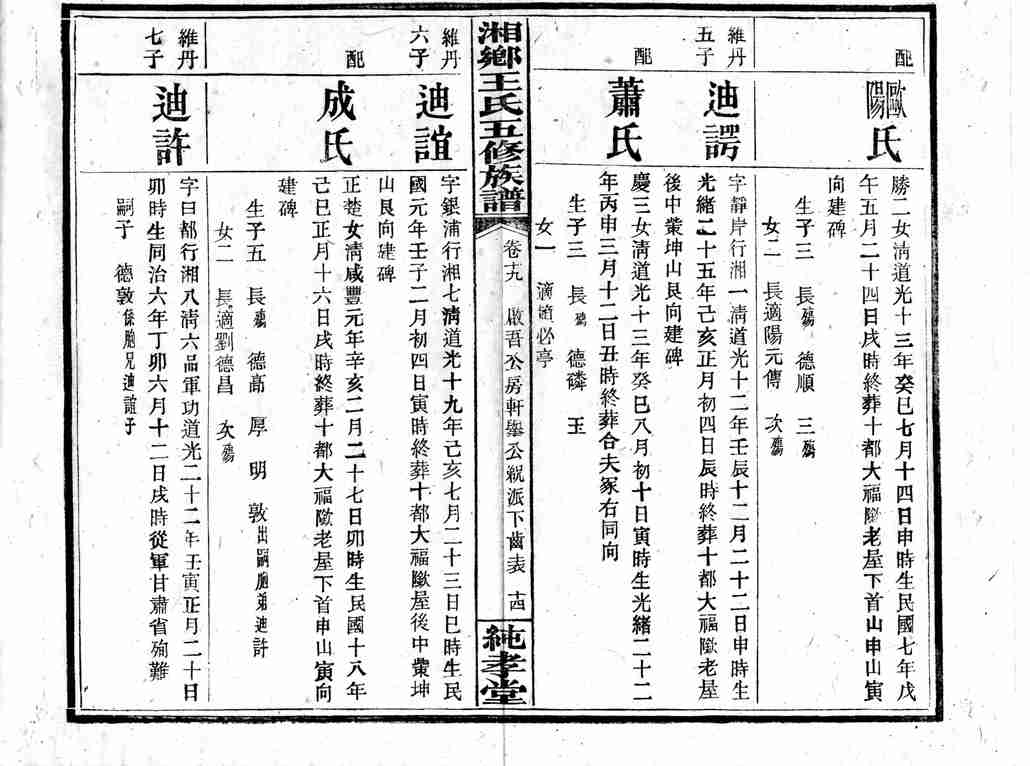 配
歐陽氏
勝二女淸道光十三年癸巳七月十四日申時生民國七年戊
午五月二十四日戌時終葬十都大福隞老屋下首山申山寅
向建碑
生子三 長殤 德順 三殤
女二 長適陽元傳 次殤
維丹
五子
迪諤
字靜岸行湘一淸道光十二年壬辰十二月二十二日申時生
光緒二十五年己亥正月初四日辰時終葬十都大福隞老屋
後中叢坤山艮向建碑
配
蕭氏
慶三女淸道光十三年癸巳八月初十日寅時生光緒二十二
年丙申三月十二日丑時終葬合夫冢右同向
生子三 長殤 德鱗 玉
女一 適 必亭
湘鄉王氏五修族譜
卷十九 啟吾公房軒舉公親派下齒表 十四
純孝堂
維丹
六子
迪誼
字銀浦行湘七淸道光十九年己亥七月二十三日巳時生民
國元年壬子二月初四日寅時終葬十都大福隞屋後中叢坤
山艮向建碑
配
成氏
正楚女淸咸豐元年辛亥二月二十七日卯時生民國十八年
己巳正月十六日戌時終葬十都大福隞老屋下首申山寅向
建碑
生子五 長殤 德高 厚 明 敦出嗣胞弟迪許
女二 長適劉德昌 次殤
維丹
七子
迪許
字日都行湘八淸六品軍功道光二十二年壬寅正月二十日
卯時生同治六年丁卯六月十二日戌時從軍甘肅省殉難
嗣子 德敦係胞兄迪誼子